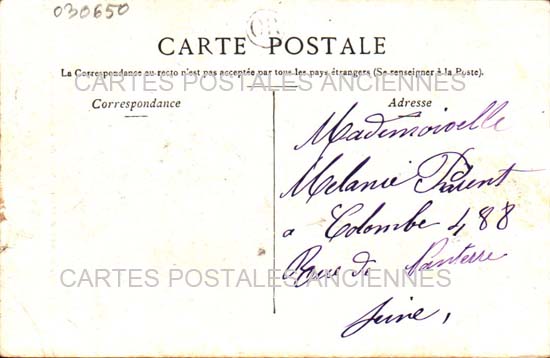 030650
OR
CARTE POSTALE
La Correspondance au recto n'est pas acceptée par tous les pays étrangers (Se renseigner à la Poste).
CARTES POSTALES ANCIENNES
Correspondance
Adresse
Mademoiselle
Melanie Parent
a Colombe 488
Rue de Nanterre
CARTES POSTALES ANCIENNES
Seine,